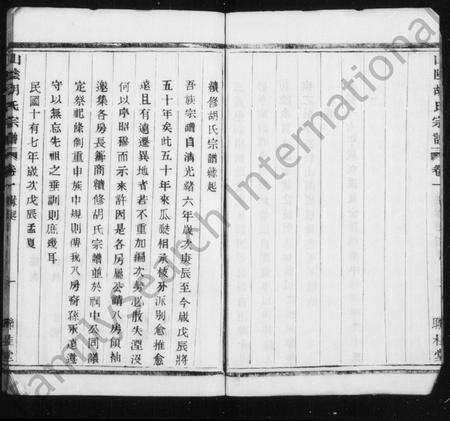 續修胡氏宗譜緣起
吾族宗譜自清光緒六年歲次庚辰至今歲戊辰將
五十年矣此五十年來瓜瓞相承枝分派別愈推愈
遠且有遠遷異地者若不重加編次勢必散失湮沒
何以序昭穆而示來許因是各房屬公請八房領袖
邀集各房長籌商續修胡氏宗譜並於祠中公同議
定祭祀條例重申族中規則俾我八房裔孫永遠遵
守以無忘先祖之垂訓則庶幾耳
民國十有七年歲次戊辰孟夏
山陰胡氏宗譜 卷一 緣起 一 聯桂堂
山陰胡氏宗譜 卷一 聯桂堂
FamilySearch International